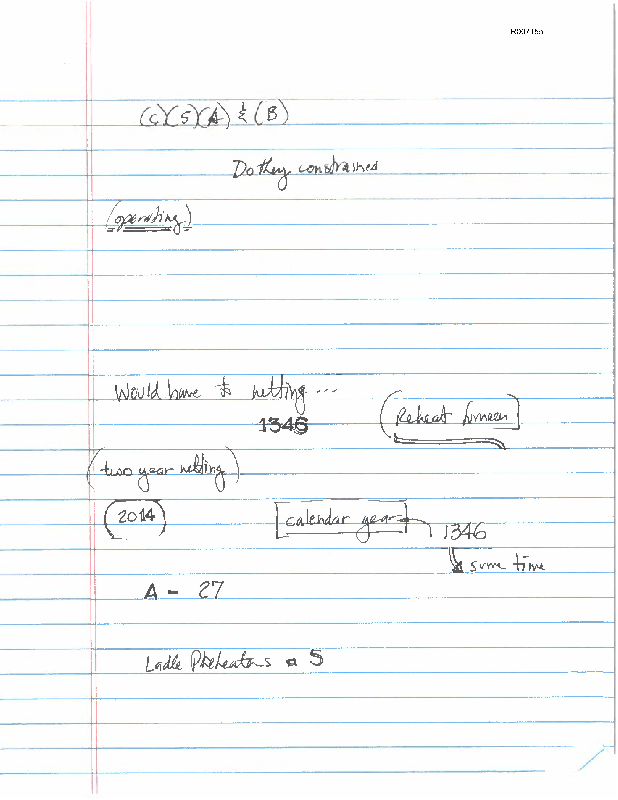 (C)(S)(A) & (B)
Do they constrained
(operating)
Would have to netting ...
1346
(Reheat furnace)
(two year netting)
(2014)
[calendar year]
1346
same time
A - 27
Ladle Preheaters 5